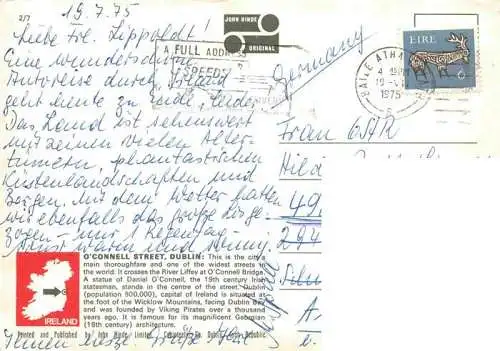 19.7.75
2/7
Liebe Frl. Lippoldt!
Eine wunderschöne
Autoreise durch Irland
geht heute zu Ende, leider.
Das Land ist sehenswert
mit seinen vielen Alter-
tümern, phantastischen
Küstenlandschaften und
Bergen. Mit dem Wetter hatten
wir ebenfalls das große Los ge-
zogen - nur 1 Regentag -
sonst warm und sonnig.
Ihnen
JOHN HINDE
ORIGINAL
A FULL ADDRESS
SPEEDS
Germany
EIRE
6
BAILE ÁTHA
1975
Frau
49
294
O'CONNELL STREET, DUBLIN: This is the city's
main thoroughfare and one of the widest streets in
the world. It crosses the River Liffey at O'Connell Bridge.
A statue of Daniel O'Connell, the 19th century Irish
statesman, stands in the centre of the street. Dublin
(population 800,000), capital of Ireland is situated at
the foot of the Wicklow Mountains, facing Dublin Bay
and was founded by Viking Pirates over a thousand
years ago. It is famous for its magnificent Georgian
(18th century) architecture.
IRELAND
Printed and Published by John Hinde Limited, Cabinteely, Co. Dublin, Irish Republic.